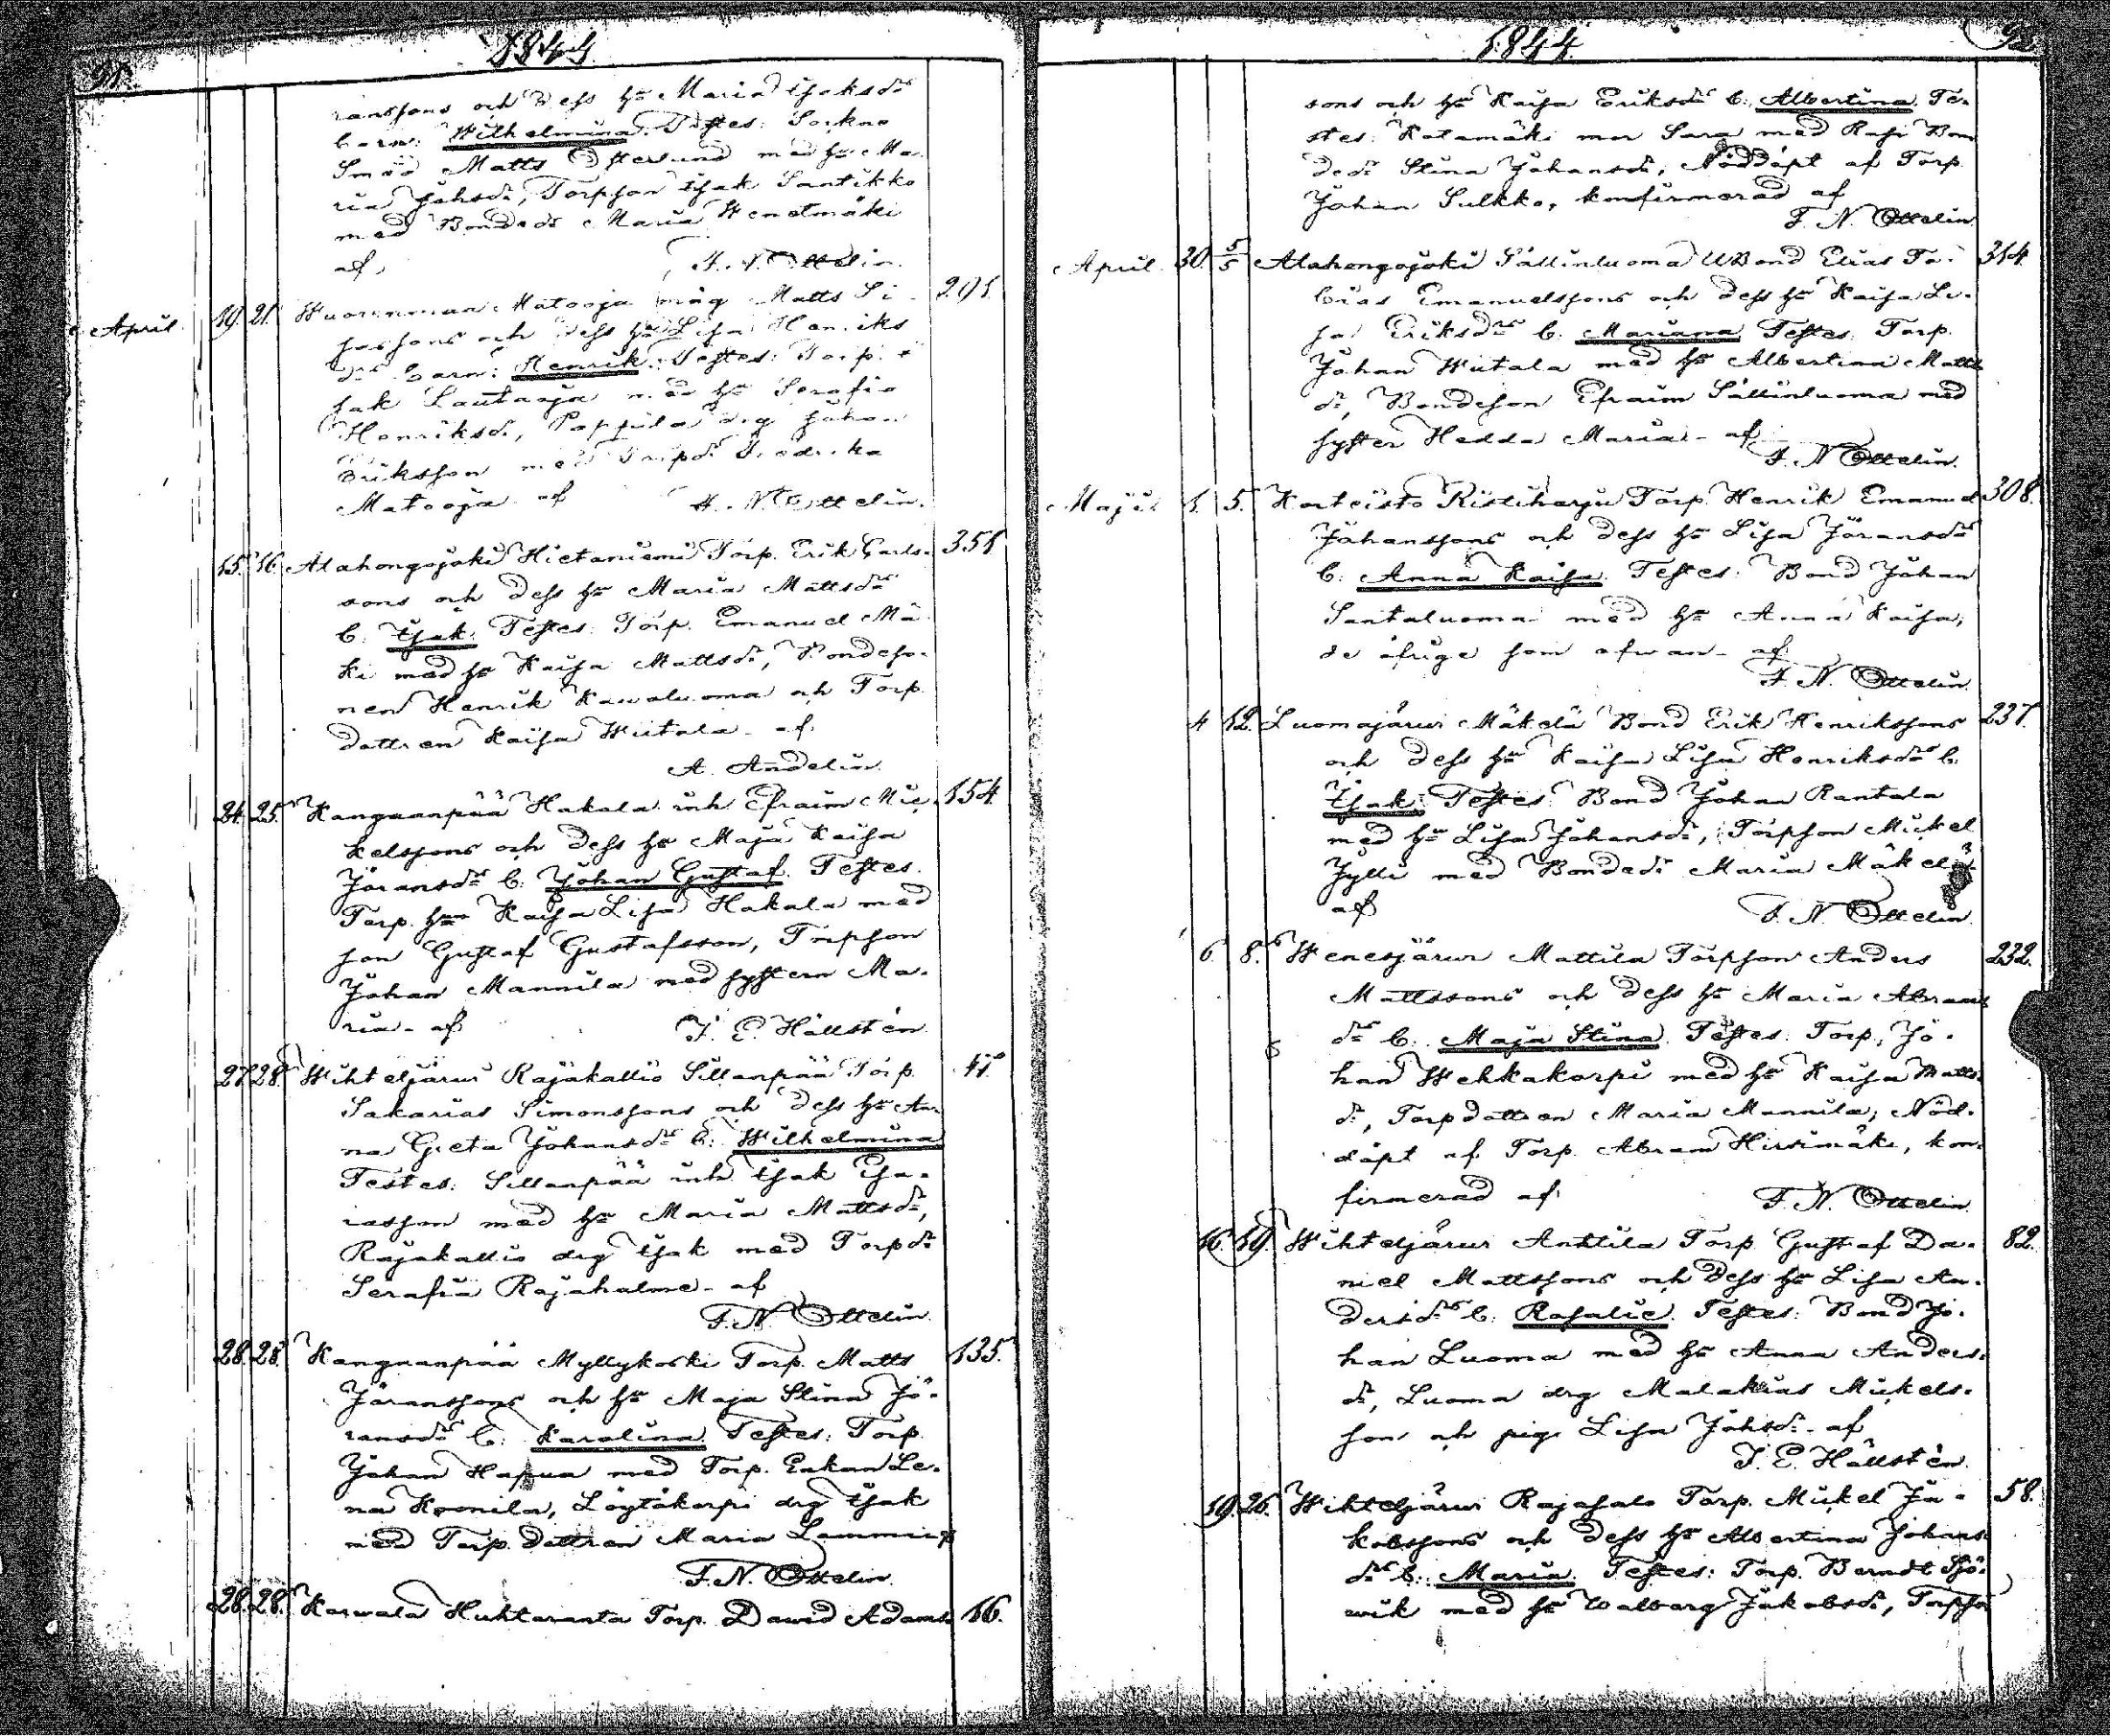 1844
91.
ranssons och dess hu Maria Isaksdr
barn: Wilhelmina. Testes: Sockne
Smed Matts Östersund med hu Ma-
ria Johsdr, Torpson Isak Santikko
med Bondedr Maria Wenetmäki
af F. N. Ottelin.
April 19. 21. Wuorenmaa Matooja måg Matts Si- 291.
hu Lisa Henriks
dr barn: Henrik. Testes: Torp. I-
sak Lautaoja med hu Serafia
Henriksdr, drg Johan
Eriksson med Torpdr Fredrika
Matooja af F. N. Ottelin.
15. 16. Alahongojoki Hietaniemi Torp. Erik Carls- 351
sons och dess hu Maria Mattsdr
b. Isak. Testes: Torp. Emanuel Mä-
ki med hu Kaisa Mattsdr, Bondeso-
nen Henrik Kawaluoma och Torp.
dottren Kaisa Wiitala af
A. Andelin.
24. 25. Kangaanpää Hakala inh Efraim Mic- 154.
kelssons och dess hu Maja Kaisa
Jöransdr b. Johan Gustaf. Testes.
Torp. hun Kaisa Lisa Hakala med
son Gustaf Gustafsson, Torpson
Johan Mannila med systern Ma-
ria - af J. E. Hällstén.
27. 28. Wihteljärwi Rajakallio Sillanpää Torp. 41.
Sakarias Simonssons och dess hu An-
na Greta Johansdr b: Wilhelmina
Testes: Sillanpää inh Isak Esa-
iasson med hu Maria Mattsdr,
Rajakallio drg Isak med Torpdr
Serafia Rajahalme - af
F. N. Ottelin.
28. 28. Kangaanpää Myllykoski Torp. Matts 135.
Jöranssons och hu Maja Stina Jö-
ransdr b: Karolina. Testes: Torp.
Johan Hapua med Torp. Enkan Le-
na Koonila, Löytökorpi drg Isak
med Torp. dottren Maria Lammi af
F. N. Ottelin.
28. 28. Karwala Huhtaranta Torp. Dawid Adams- 16.
1844.
92
sons och hu Kaisa Eriksdr b: Albertina. Te-
stes: Katamäki mor Sara med Bon
dedr Stina Johansdr, Nöddöpt af Torp.
Johan Sulkko, konfirmerad af
F. N. Ottelin
April 30. 5/5 Alahongojoki Sällinluoma Bond Elias To- 314.
bias Emanuelssons och dess hu Kaisa Li-
sa Eriksdr b. Mariana. Testes: Torp.
Johan Wiitala med hu Albertina Matts
dr, Bondeson Efraim Sällinluoma med
syster Hedda Maria - af
F. N. Ottelin.
Maji 1. 5. Korteisto Ristiharju Torp. Henrik Emanuel 308.
Johanssons och dess hu Lisa Jöransdr
b: Anna Kaisa. Testes: Bond Johan
Santaluoma med hu Anna Kaisa,
de öfrige som ofwan - af
F. N. Ottelin.
4 12. Luomajärwi Mäkelä Bond Erik Henrikssons 237.
och dess hu Kaisa Lisa Henriksdr b.
Isak. Testes: Bond Johan Rantala
med hu Lisa Johansdr, Torpson Mickel
Jylli med Bondedr Maria Mäkelä
af F. N. Ottelin.
6. 8. Wenesjärwi Mattila Torpson Anders 232.
Mattssons och dess hu Maria Abrams
dr b: Maja Stina. Testes: Torp. Jo-
han Wehkakorpi med hu Kaisa Matts-
dr, Torpdottren Maria Mannila, Nöd-
döpt af Torp. Abram Hirsimäki, kon-
firmerad af F. N. Ottelin.
16. 19. Wihteljärwi Anttila Torp. Gustaf Da- 82.
niel Mattssons och dess hu Lisa An-
dersdr b: Rosalie. Testes: Bond Jo-
han Luoma med hu Anna Anders-
dr, Luoma drg Malakias Mickels-
son och pig. Lisa Johsdr - af
J. E. Hällstén.
19. 26. Wihteljärwi Rajasalo Torp. Mickel Ja- 58.
kobssons och dess hu Albertina Johans
dr b: Maria. Testes: Torp. Berndt Sjö-
wik med hu Walborg Jakobsdr, Torpson